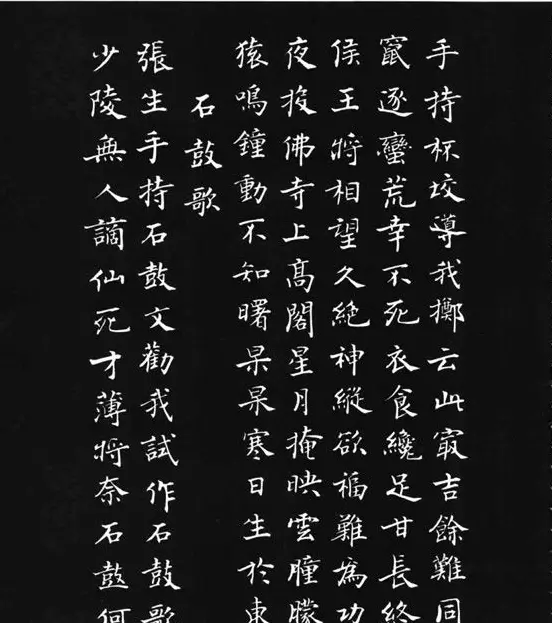 手持杯珓導我擲云此㝡吉餘難同
竄逐蠻荒幸不死衣食纔足甘長終
侯王將相望久絶神縱欲福難為功
夜投佛寺上高閣星月掩映雲瞳朦
猿鳴鐘動不知曙杲杲寒日生於東
石鼓歌
張生手持石鼓文勸我試作石鼓歌
少陵無人謫仙死才薄將奈石鼓何